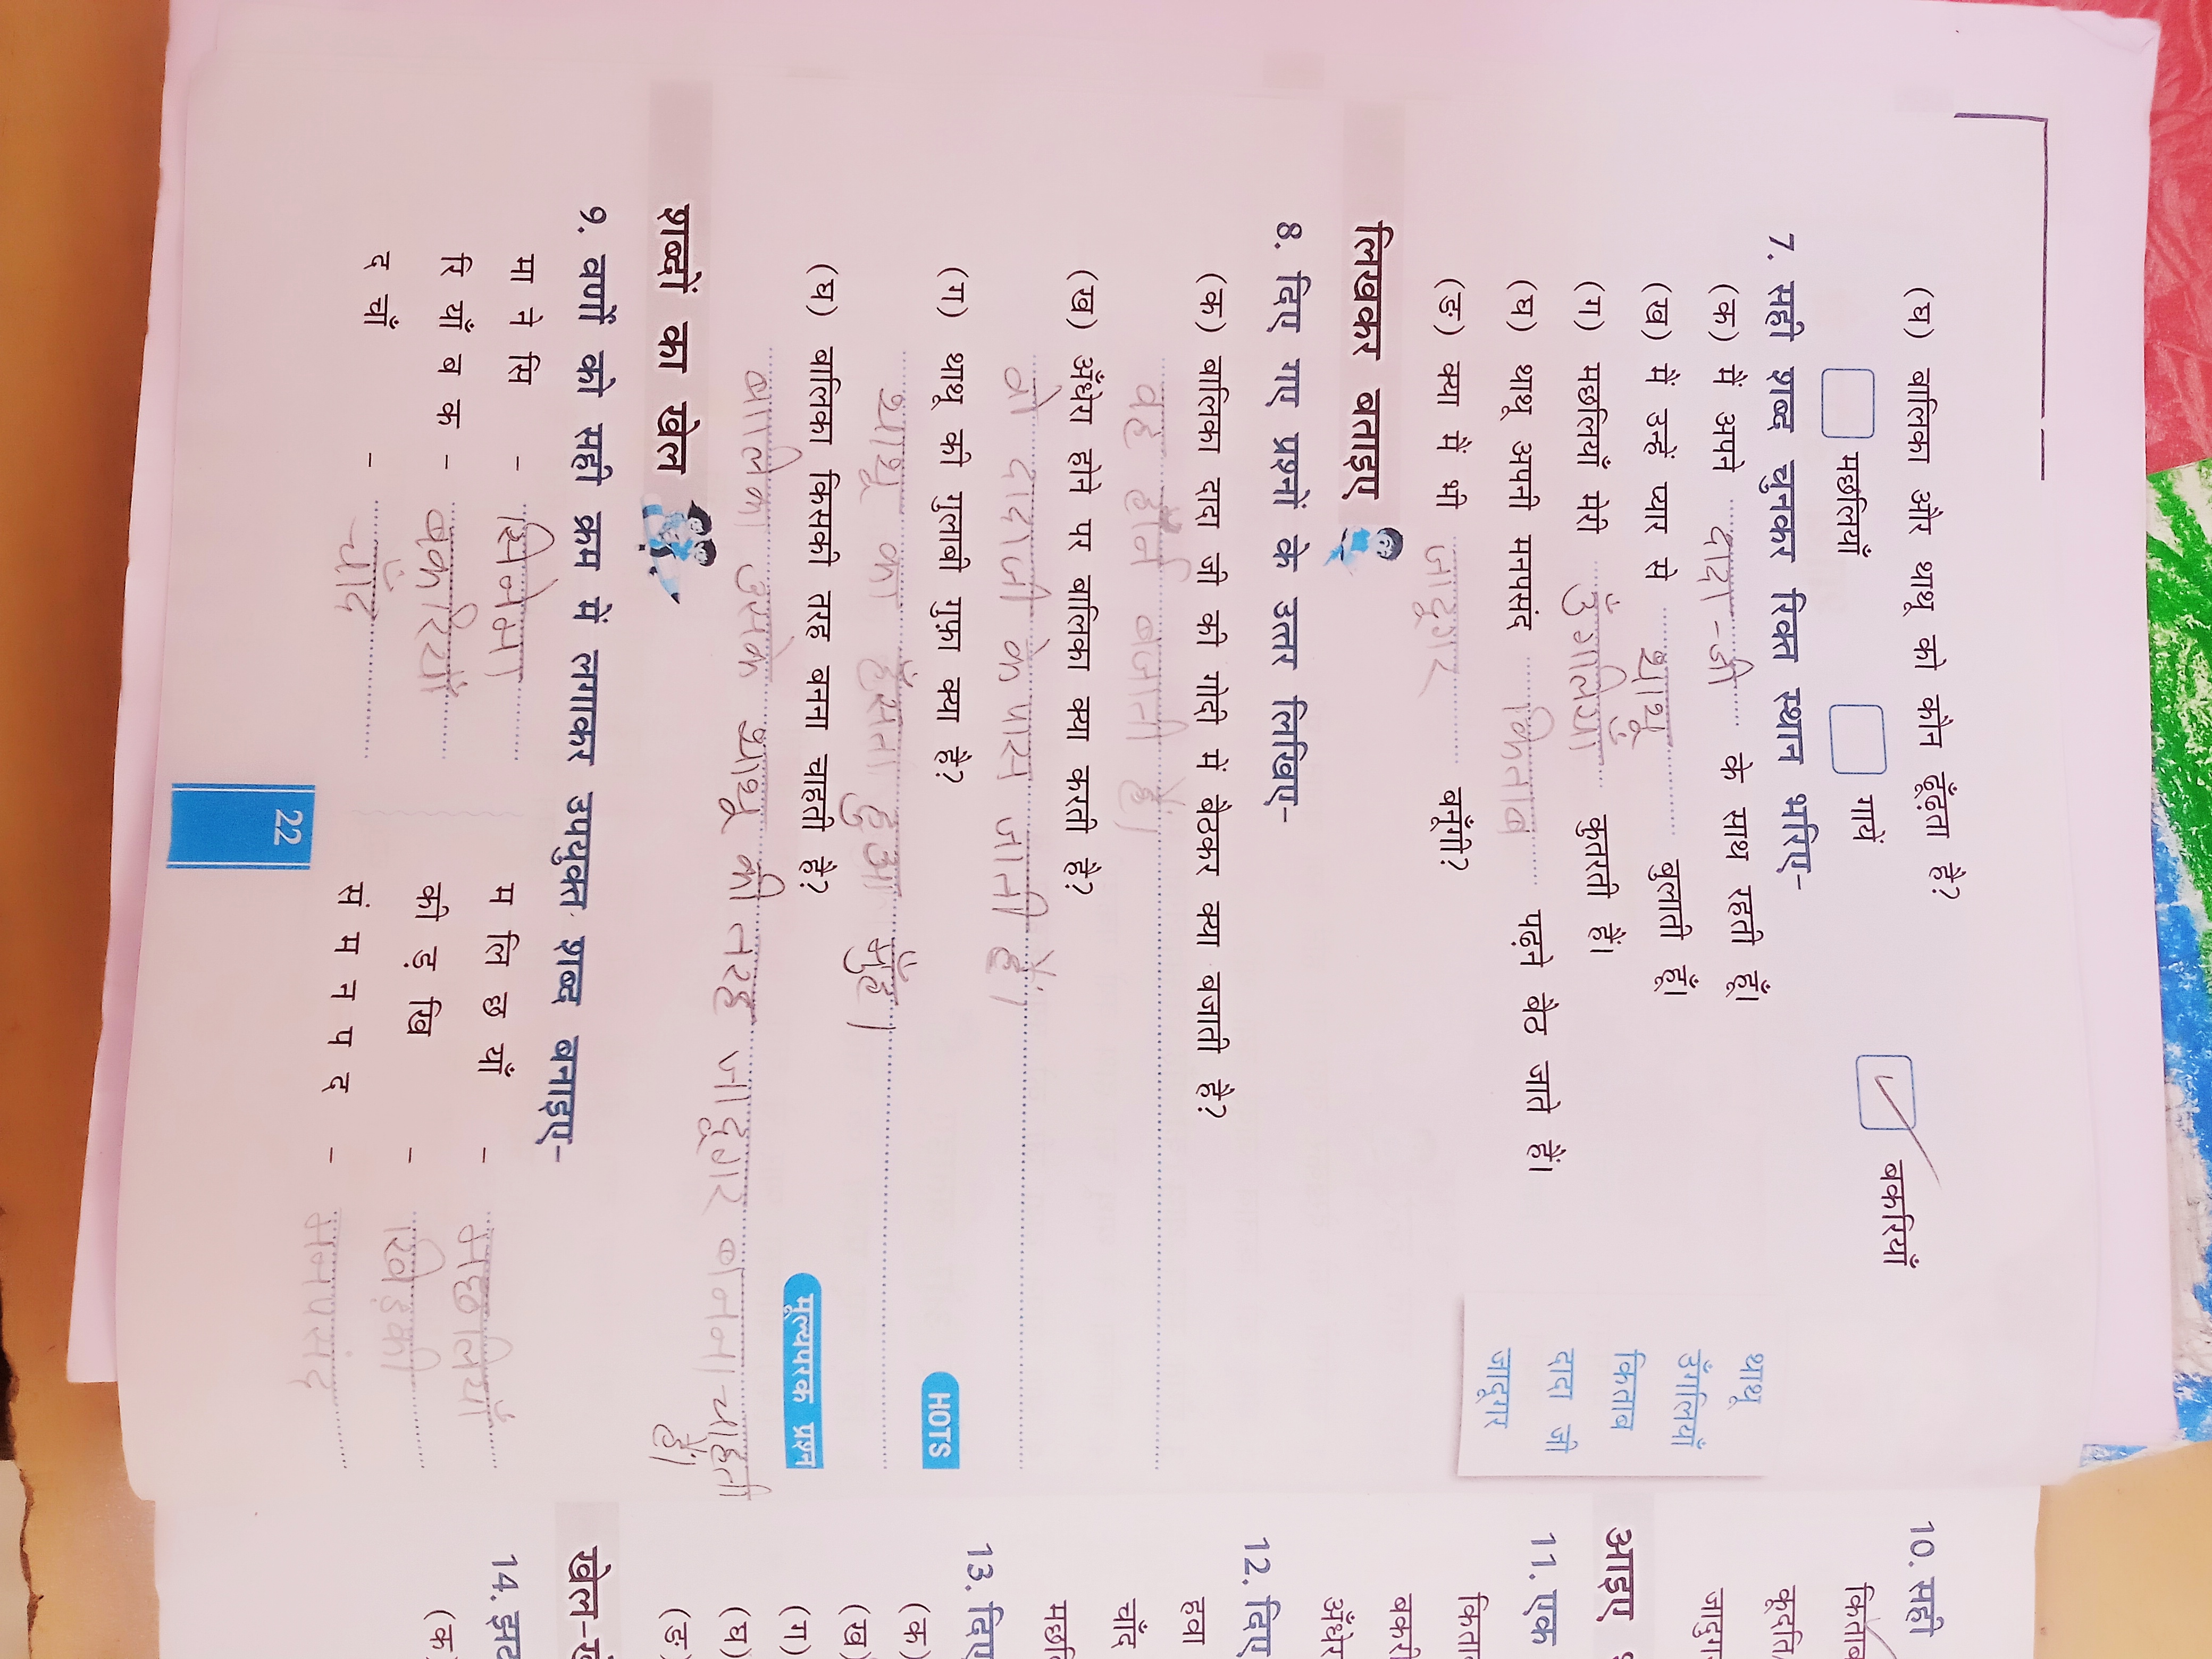 (घ) बालिका और थाथू को कौन ढूँढ़ता है?
मछलियाँ गायें बकरियाँ
7. सही शब्द चुनकर रिक्त स्थान भरिए-
(क) मैं अपने दादा-जी के साथ रहती हूँ।
(ख) मैं उन्हें प्यार से थाथू बुलाती हूँ।
(ग) मछलियाँ मेरी उँगलियाँ कुतरती हैं।
(घ) थाथू अपनी मनपसंद किताब पढ़ने बैठ जाते हैं।
(ङ) क्या मैं भी जादूगर बनूँगी?
थाथू
उँगलियाँ
किताब
दादा जी
जादूगर
लिखकर बताइए
8. दिए गए प्रश्नों के उत्तर लिखिए-
(क) बालिका दादा जी की गोदी में बैठकर क्या बजाती है?
वह हॉर्न बजाती है।
(ख) अँधेरा होने पर बालिका क्या करती है?
वो दादाजी के पास जाती हैं।
(ग) थाथू की गुलाबी गुफ़ा क्या है?
HOTS
थाथू का हँसता हुआ मुँह।
(घ) बालिका किसकी तरह बनना चाहती है?
मूल्यपरक प्रश्न
बालिका उसके थाथू की तरह जादूगर बनना चाहती
है।
शब्दों का खेल
9. वर्णों को सही क्रम में लगाकर उपयुक्त शब्द बनाइए-
मा ने सि - सिनेमा
म लि छ याँ - मछलियाँ
रि याँ ब क - बकरियाँ
की ड़ खि - खिड़की
द चाँ - चाँद
सं म न प द - मनपसंद
22
10. सही
किताब
कूदति
जादुगा
आइए
11. एक
किता
बकरी
अँधेर
12. दिए
हवा
चाँद
मछि
13. दिए
(क)
(ख)
(ग)
(घ)
(ङ)
खेल-खे
14. झट
(क)